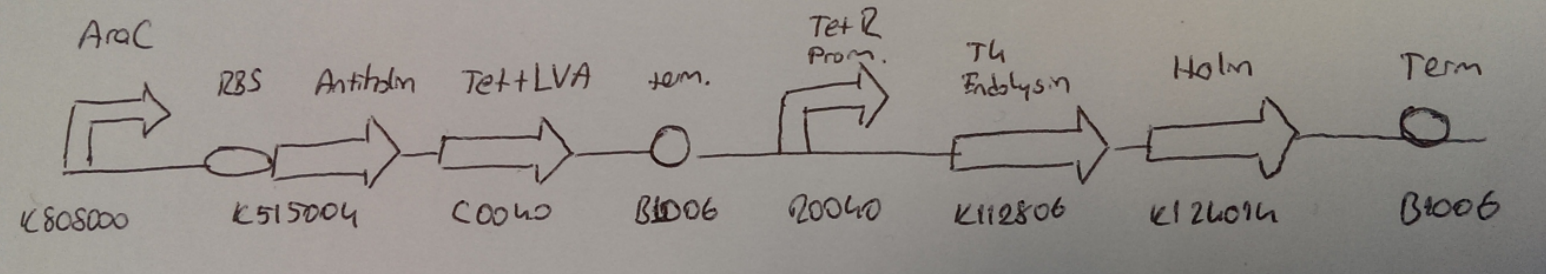 AraC
RBS
Antiholn
Tet+LVA
term.
TetR
Prom.
T4
Endolysin
Holn
Term
K808000
K515004
C0040
B1006
R0040
K112806
K124014
B1006